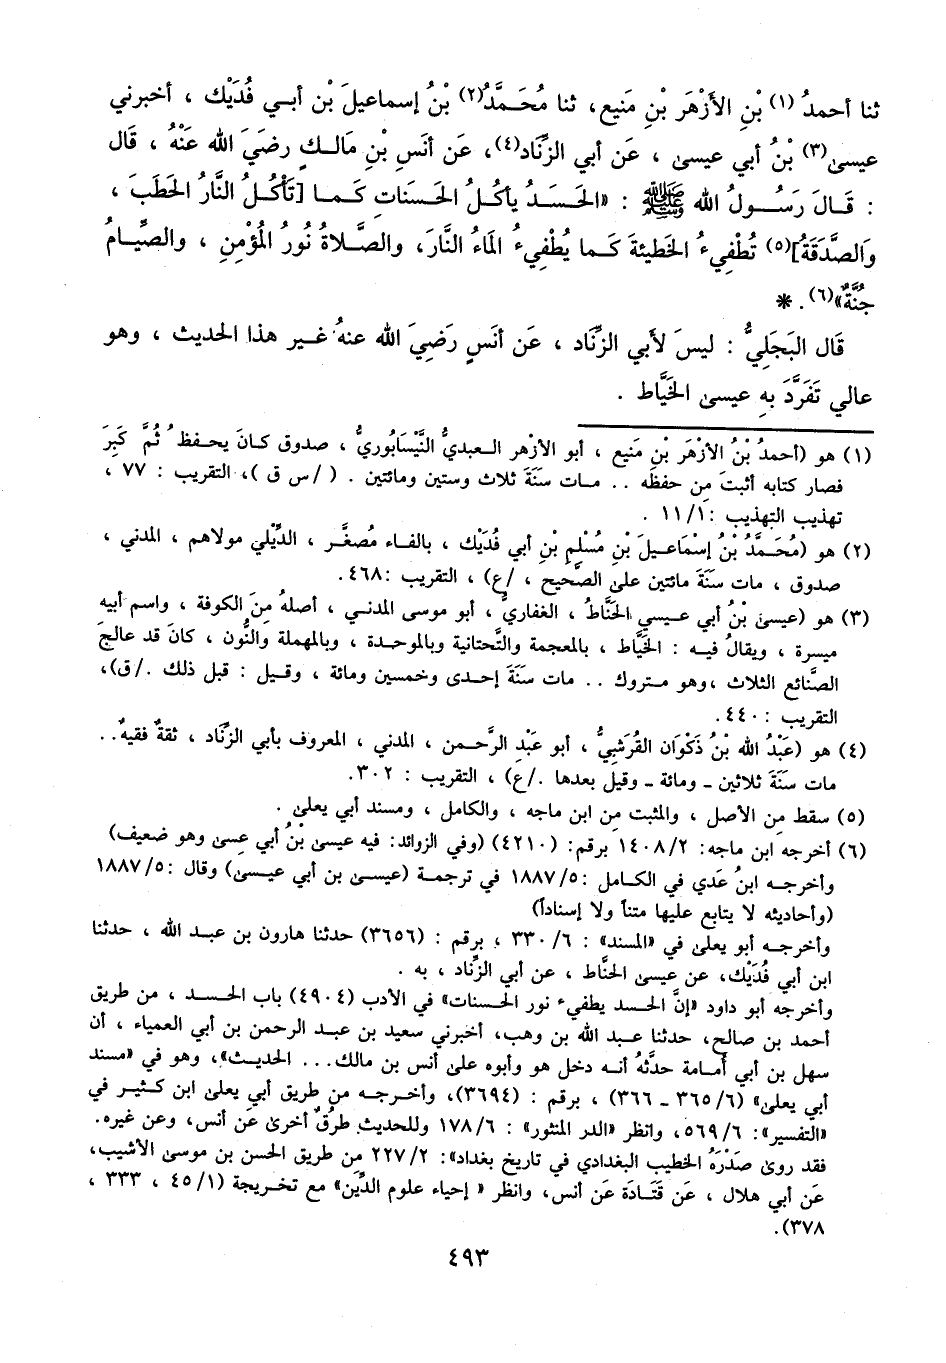 ثنا أحمدُ (١) بْنِ الأَزْهَر بْنِ مَنيع، ثنا مُحَمَّدُ(٢) بْنُ إسماعيلَ بْنِ أبي فُدَيْك ، أخبرني
عيسىٰ(٣) بْنُ أبي عيسىٰ ، عَن أبي الزِّنَاد(٤)، عَن أنَسِ بْنِ مَالك رضَيَ الله عَنْهُ ، قَال
: قَالَ رَسُولُ الله ﷺ : «الحَسَدُ يأكُلُ الحَسَنَاتِ كَما [تَأكُلُ النَّارُ الحَطَبَ ،
وَالصَّدَقَةُ](٥) تُطْفِيءُ الخَطيئةَ كَما يُطْفِيءُ المَاءُ النَّارَ، والصَّلاةُ نُورُ المُؤْمِنِ ، والصِّيامُ
جنُةٌ»(٦) . *
قَال البَجَليُّ : ليسَ لأبي الزِّنَاد ، عَن أنَسٍ رَضِيَ الله عنهُ غير هذا الحديث ، وهو
عالي تَفَرَّدَ بِهِ عيسىٰ الخَيَّاط .
(١) هو (أحمدُ بْنُ الأزْهَرِ بْنِ مَنيع ، أبو الأزْهر العبديُّ النَّيْسَابُوريُّ ، صدوق كانَ يحفظ ُ ثُمَّ كَبِرَ
فصار كتابه أثبتَ مِن حفظَه .. مات سنَةَ ثلاث وستين ومائتين . ( /س ق )، التقريب : ٧٧ ،
تهذيب التهذيب :١١/١ .
(٢) هو (مُحَمَّدُ بْنُ إسْمَاعيلَ بْنِ مُسْلِم بْنِ أبي فُدَيْك ، بالفاء مُصغَّر ، الدِّيْلي مولاهم ، المدني ،
صدوق ، مات سنَةَ مائتين علىٰ الصَّحيح ، /ع) ، التقريب :٤٦٨.
(٣) هو (عيسىٰ بْنُ أبي عيسي الحَنَّاطُ ، الغفاريُّ ، أبو موسى المدني ، أصلهُ مِنَ الكوفة ، واسم أبيه
ميسرة ، ويقالُ فيه : الخَيَّاط ، بالمعجمة والتَّحتانية وبالموحدة ، وبالمهملة والنُّون ، كانَ قد عالجَ
الصَّنائع الثلاث ،وهو متروك .. مات سنَةَ إحدى وخمسين ومائة ، وقيل : قبل ذلك ./ق)،
التقريب :٤٤٠.
(٤) هو (عَبْدُ الله بْنُ ذَكْوَان القُرَشيُّ ، أبو عَبْدِ الرَّحمن ، المدني ، المعروف بأبي الزِّنَاد ، ثقةٌ فقيهٌ..
مات سَنَةَ ثلاثين ـ ومائة ـ وقيل بعدها ./ع) ، التقريب : ٣٠٢.
(٥) سقط مِن الأصل ، والمثبت مِن ابن ماجه ، والكامل ، ومسند أبي يعلىٰ .
(٦) أخرجه ابن ماجه: ١٤٠٨/٢ برقم: (٤٢١٠) (وفي الزوائد: فيه عيسىٰ بنُ أبي عِسىٰ وهو ضعيف)
وأخرجه ابنُ عَدي في الكامل :١٨٨٧/٥ في ترجمة (عيسىٰ بن أبي عيسىٰ) وقال :١٨٨٧/٥
(وأحاديثه لا يتابع عليها متناً ولا إسناداً)
وأخرجه أبو يعلىٰ في «المسند» : ٣٣٠/٦ ، برقم : (٣٦٥٦) حدثنا هارون بن عبد الله ، حدثنا
ابن أبي فُدَيْك، عن عيسىٰ الحنَّاط ، عن أبي الزِّناد ، به .
وأخرجه أبو داود «إنَّ الحسد يطفيء نور الحسنات» في الأدب (٤٩٠٤) باب الحسد ، من طريق
أحمد بن صالح، حدثنا عبد الله بن وهب، أخبرني سعيد بن عبد الرحمن بن أبي العمياء ، أن
سهل بن أبي أُمامة حدَّثهُ أنه دخل هو وأبوه علىٰ أنس بن مالك... الحديث»، وهو في «مسند
أبي يعلىٰ» (٣٦٥/٦ ـ ٣٦٦) ، برقم : (٣٦٩٤)، وأخرجه من طريق أبي يعلىٰ ابن كثير في
«التفسير»: ٥٦٩/٦، وانظر «الدر المنثور» : ١٧٨/٦ وللحديث طرُقٌ أخرىٰ عَن أنس، وعن غيره.
فقد روىٰ صَدْرَهُ الخطيب البغدادي في تاريخ بغداد»: ٢٢٧/٢ مِن طريق الحسن بن موسىٰ الأشيب،
عَن أبي هلال ، عَن قَتَادَة عَن أنس، وانظر « إحياء علوم الدِّين» مع تخريجة (٤٥/١ ، ٣٣٣ ،
٣٧٨).
٤٩٣